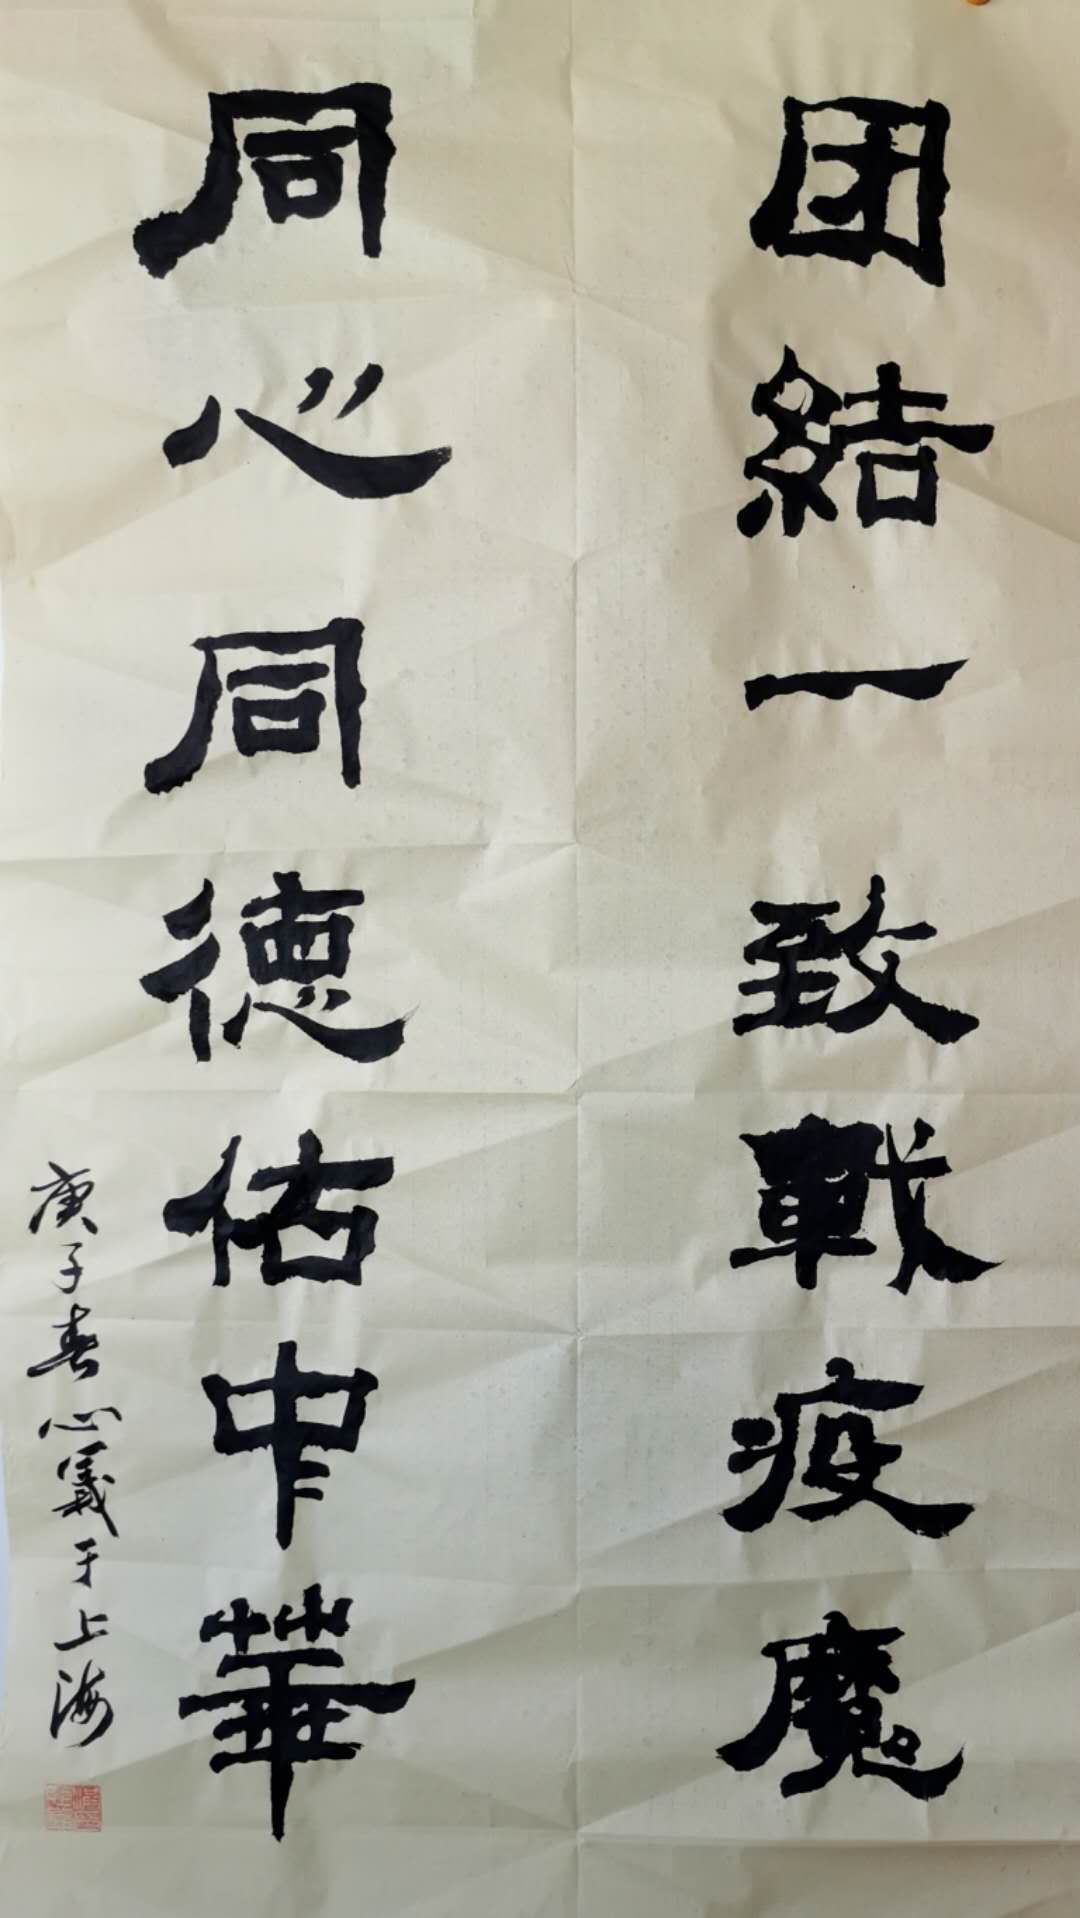 团結一致戰疫魔
同心同德佑中華
庚子春心義于上海